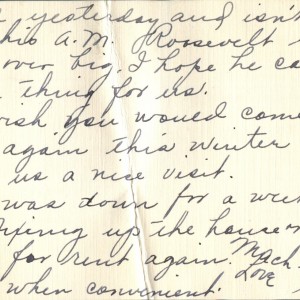 yesterday and isn't
his A.M. Roosevelt
over big. I hope he ca
thing for us.
ish you would come
again this winter
us a nice visit.
was down for a week
fixing up the house
for rent again. Much
Love
when convenient.